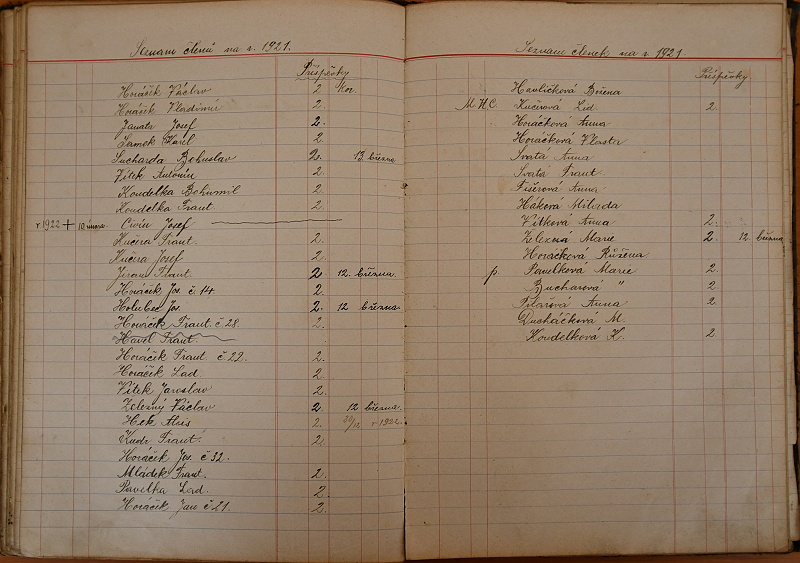 Seznam členů na r. 1921.
Příspěvky
Horáček Václav 2 Kor.
Horáček Vladimír 2
Janata Josef 2.
Lamek Karel 2
Sucharda Bohuslav 2. 13 března
Vítek Antonín 2.
Koudelka Bohumil 2.
Koudelka Frant. 2.
r 1922 + 10 února Civín Josef
Kučera Frant. 2.
Kučera Josef 2.
Jiran Frant. 2 12. března.
Horáček Jos. č. 14. 2.
Holubec Jos. 2. 12 března.
Horáček Frant. č. 28. 2.
Havel Frant.
Horáček Frant č. 22. 2.
Horáček Lad. 2.
Vítek Jaroslav 2.
Železný Václav 2 12 března.
Hek Alois 2. 30/12 r 1922.
Kudr Frant. 2.
Horáček Jos. č 32.
Mládek Frant. 2.
Pavelka Lad. 2.
Horáček Jan č 21. 2.
Seznam členek na r. 1921.
Příspěvky.
Havlíčková Božena
M.H.C. Kučerová Lid 2.
Horáčková Anna
Horáčková Vlasta
Svatá Anna
Svatá Frant
Fišerová Anna
Háková Milada
Vítková Anna 2.
Železná Marie 2. 12. března
Horáčková Růžena.
p. Pavelková Marie 2.
Bucharová " 2
Pilařová Anna 2
Ducháčková M.
Koudelková K. 2.